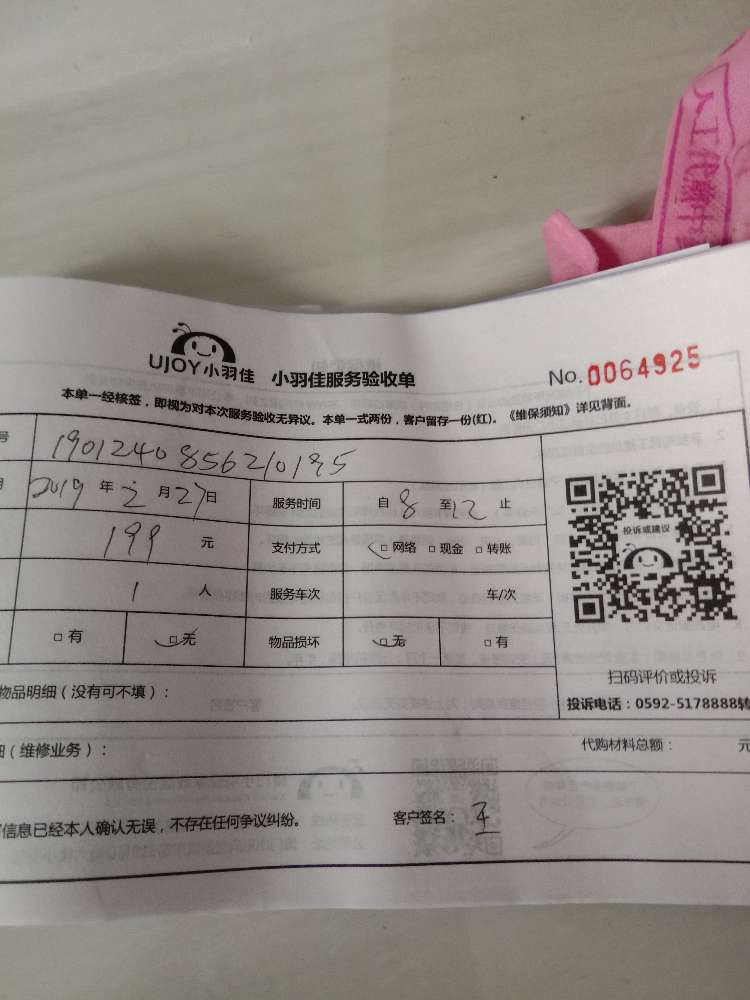 人工代购中
UJOY小羽佳 小羽佳服务验收单 No.0064925
本单一经核签，即视为对本次服务验收无异议。本单一式两份，客户留存一份(红)。《维保须知》详见背面。
号 1901240856210195
月 2019 年 2 月 27 日 服务时间 自 8 至 12 止
199 元 支付方式 □网络 □现金 □转账
1 人 服务车次 车/次
□有 □无 物品损坏 □无 □有
投诉或建议
扫码评价或投诉
投诉电话：0592-5178888转
物品明细（没有可不填）：
细（维修业务）： 代购材料总额： 元
信息已经本人确认无误，不存在任何争议纠纷。 客户签名：王